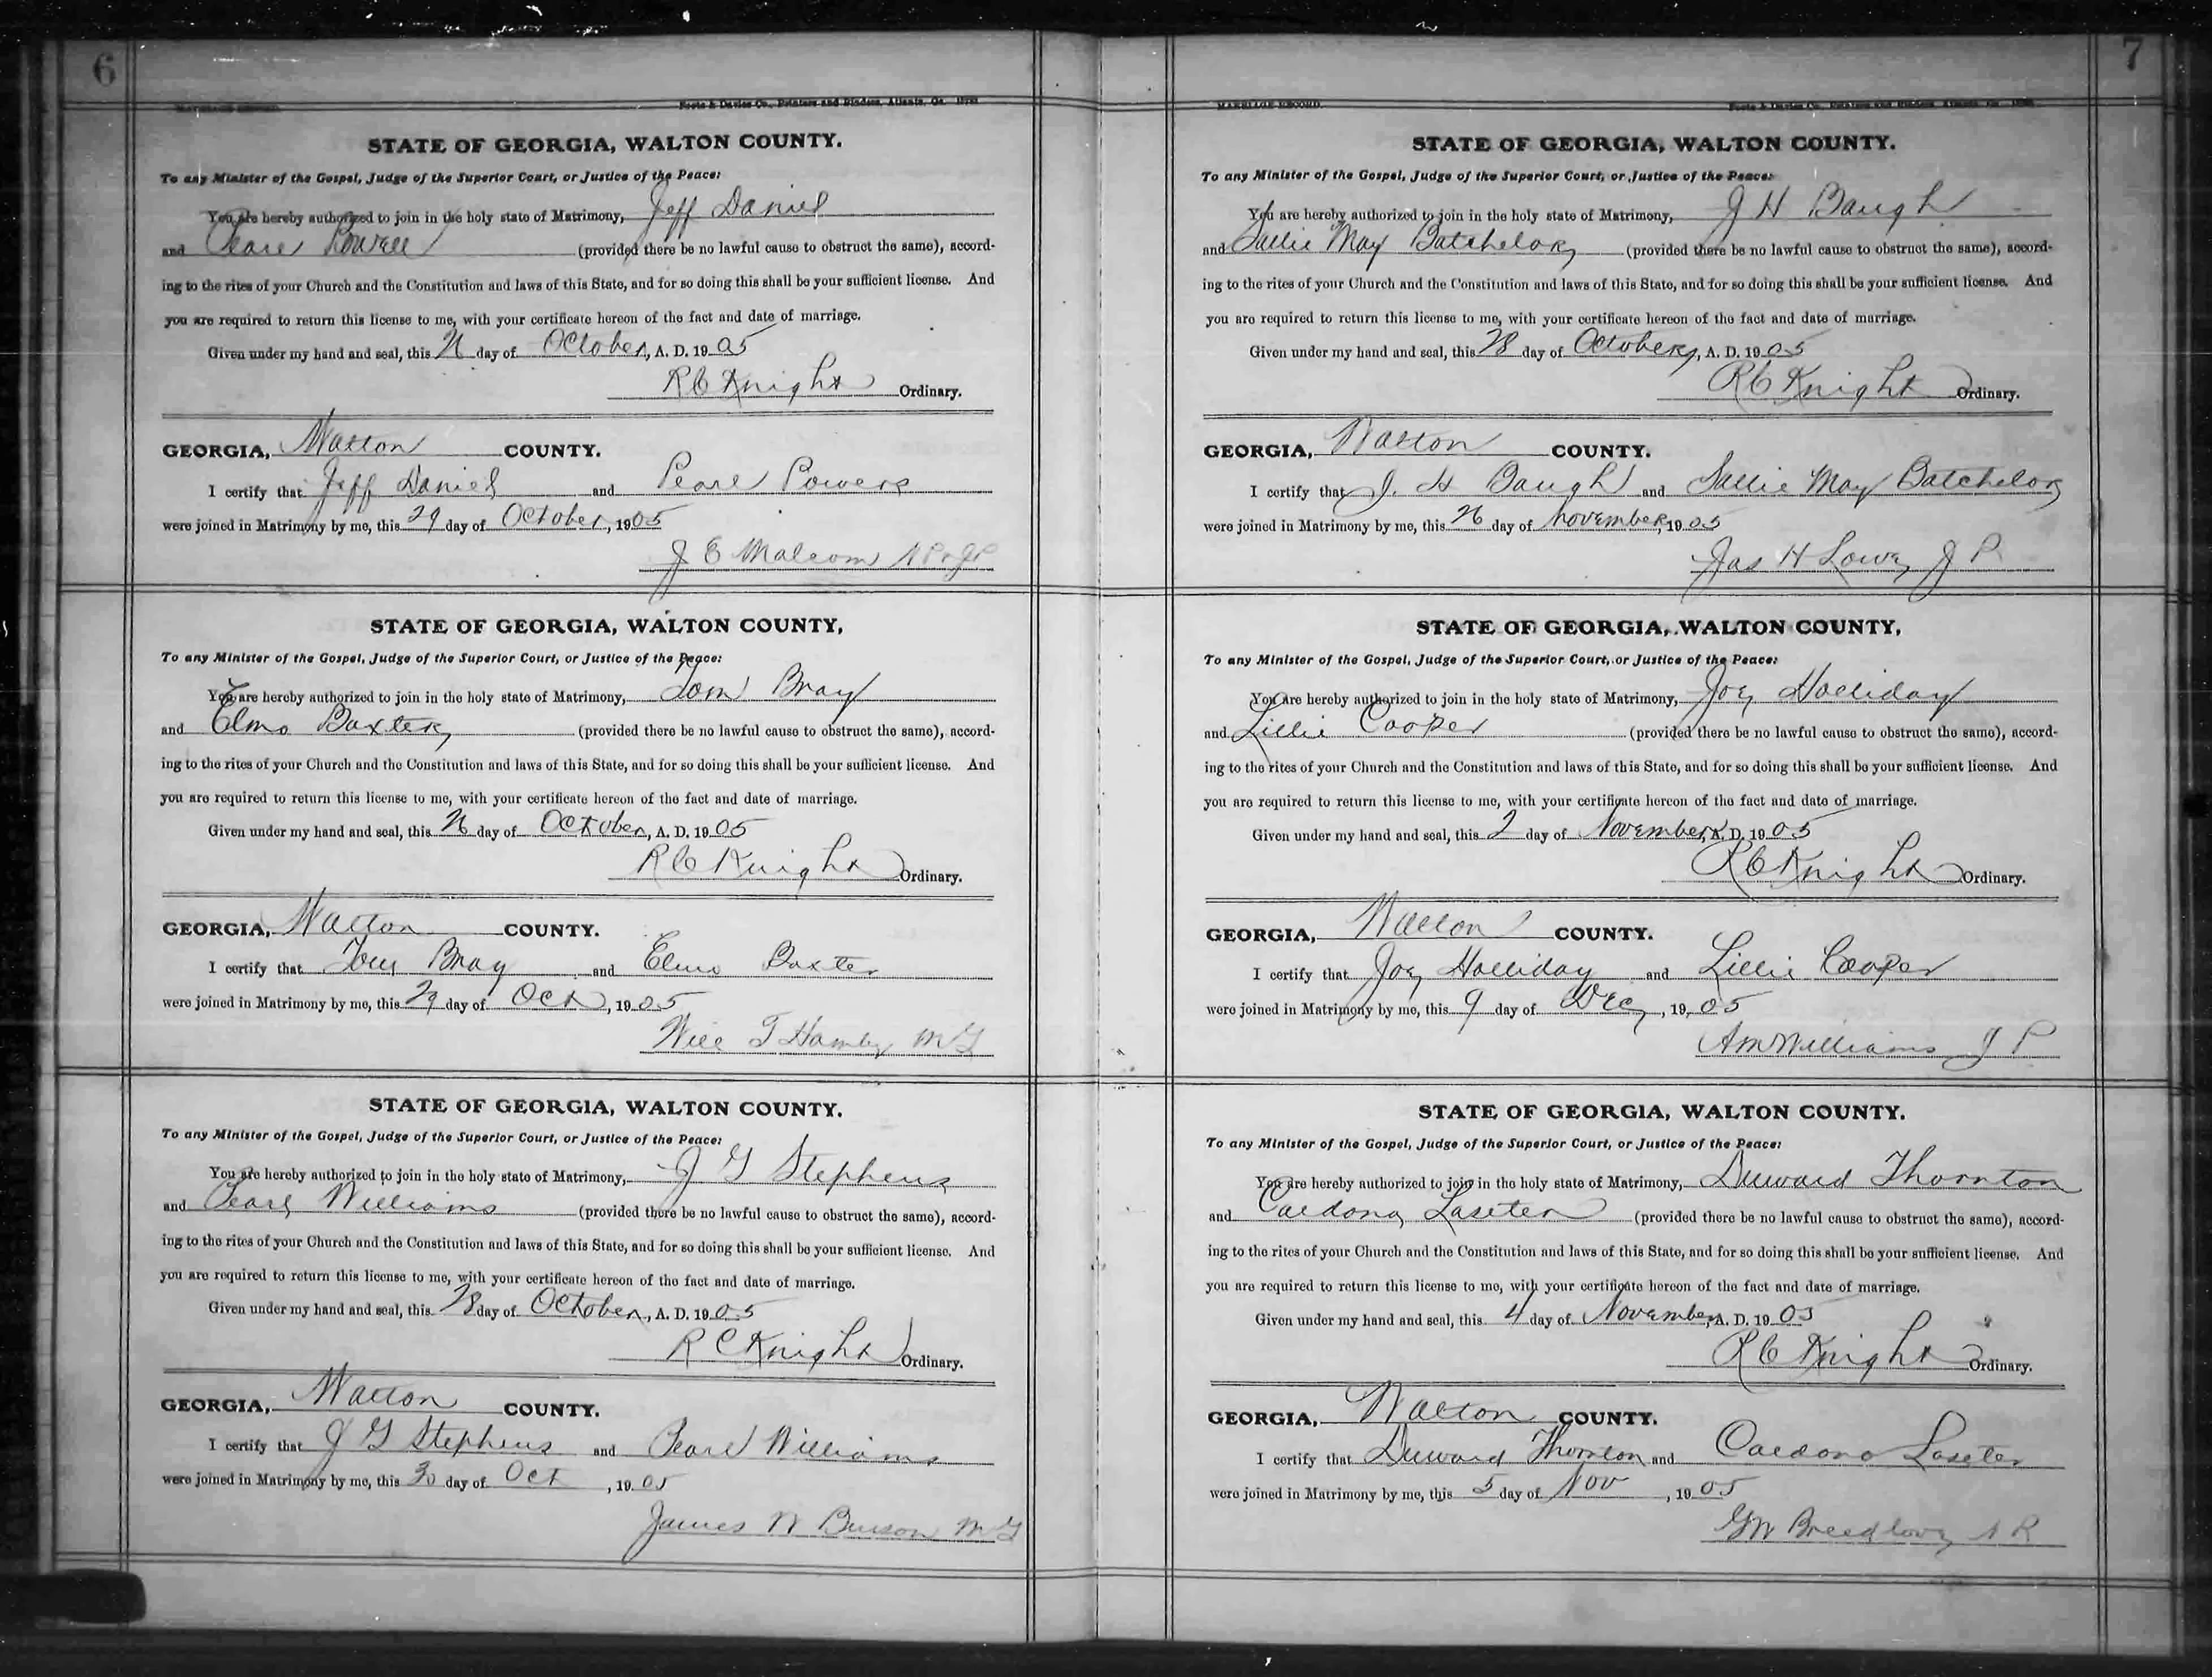 6
MARRIAGE RECORD.
Foote & Davies Co., Printers and Binders, Atlanta, Ga.
STATE OF GEORGIA, WALTON COUNTY.
To any Minister of the Gospel, Judge of the Superior Court, or Justice of the Peace:
You are hereby authorized to join in the holy state of Matrimony, Jeff Daniel
and Pearl (provided there be no lawful cause to obstruct the same), accord-
ing to the rites of your Church and the Constitution and laws of this State, and for so doing this shall be your sufficient license. And
you are required to return this license to me, with your certificate hereon of the fact and date of marriage.
Given under my hand and seal, this 26 day of October, A. D. 1905
R C Knight Ordinary.
GEORGIA, Walton COUNTY.
I certify that Jeff Daniel and Pearl Powers
were joined in Matrimony by me, this 29 day of October, 1905
J E Malcom N P & J P
STATE OF GEORGIA, WALTON COUNTY,
To any Minister of the Gospel, Judge of the Superior Court, or Justice of the Peace:
You are hereby authorized to join in the holy state of Matrimony, Tom Bray
and Elmo Baxter (provided there be no lawful cause to obstruct the same), accord-
ing to the rites of your Church and the Constitution and laws of this State, and for so doing this shall be your sufficient license. And
you are required to return this license to me, with your certificate hereon of the fact and date of marriage.
Given under my hand and seal, this 26 day of October, A. D. 1905
R C Knight Ordinary.
GEORGIA, Walton COUNTY.
I certify that Tom Bray and Elmo Baxter
were joined in Matrimony by me, this 29 day of Oct, 1905
Will T Hamby M G
STATE OF GEORGIA, WALTON COUNTY.
To any Minister of the Gospel, Judge of the Superior Court, or Justice of the Peace:
You are hereby authorized to join in the holy state of Matrimony, J G Stephens
and Pearl Williams (provided there be no lawful cause to obstruct the same), accord-
ing to the rites of your Church and the Constitution and laws of this State, and for so doing this shall be your sufficient license. And
you are required to return this license to me, with your certificate hereon of the fact and date of marriage.
Given under my hand and seal, this 28 day of October, A. D. 1905
R C Knight Ordinary.
GEORGIA, Walton COUNTY.
I certify that J G Stephens and Pearl Williams
were joined in Matrimony by me, this 30 day of Oct, 1905
James W Burson M G
7
MARRIAGE RECORD.
Foote & Davies Co., Printers and Binders, Atlanta, Ga.
STATE OF GEORGIA, WALTON COUNTY.
To any Minister of the Gospel, Judge of the Superior Court, or Justice of the Peace:
You are hereby authorized to join in the holy state of Matrimony, J H Baugh
and Sallie May Batchelor (provided there be no lawful cause to obstruct the same), accord-
ing to the rites of your Church and the Constitution and laws of this State, and for so doing this shall be your sufficient license. And
you are required to return this license to me, with your certificate hereon of the fact and date of marriage.
Given under my hand and seal, this 28 day of October, A. D. 1905
R C Knight Ordinary.
GEORGIA, Walton COUNTY.
I certify that J. H Baugh and Sallie May Batchelor
were joined in Matrimony by me, this 26 day of November, 1905
Jas H Lowe J P
STATE OF GEORGIA, WALTON COUNTY,
To any Minister of the Gospel, Judge of the Superior Court, or Justice of the Peace:
You are hereby authorized to join in the holy state of Matrimony, Joe Holliday
and Lillie Cooper (provided there be no lawful cause to obstruct the same), accord-
ing to the rites of your Church and the Constitution and laws of this State, and for so doing this shall be your sufficient license. And
you are required to return this license to me, with your certificate hereon of the fact and date of marriage.
Given under my hand and seal, this 2 day of November, A. D. 1905
R C Knight Ordinary.
GEORGIA, Walton COUNTY.
I certify that Joe Holliday and Lillie Cooper
were joined in Matrimony by me, this 9 day of Dec, 1905
A M Williams J P
STATE OF GEORGIA, WALTON COUNTY.
To any Minister of the Gospel, Judge of the Superior Court, or Justice of the Peace:
You are hereby authorized to join in the holy state of Matrimony, Duward Thornton
and Caldona Laseter (provided there be no lawful cause to obstruct the same), accord-
ing to the rites of your Church and the Constitution and laws of this State, and for so doing this shall be your sufficient license. And
you are required to return this license to me, with your certificate hereon of the fact and date of marriage.
Given under my hand and seal, this 4 day of November, A. D. 1905
R C Knight Ordinary.
GEORGIA, Walton COUNTY.
I certify that Duward Thornton and Caldona Laseter
were joined in Matrimony by me, this 5 day of Nov, 1905
G W Breedlove